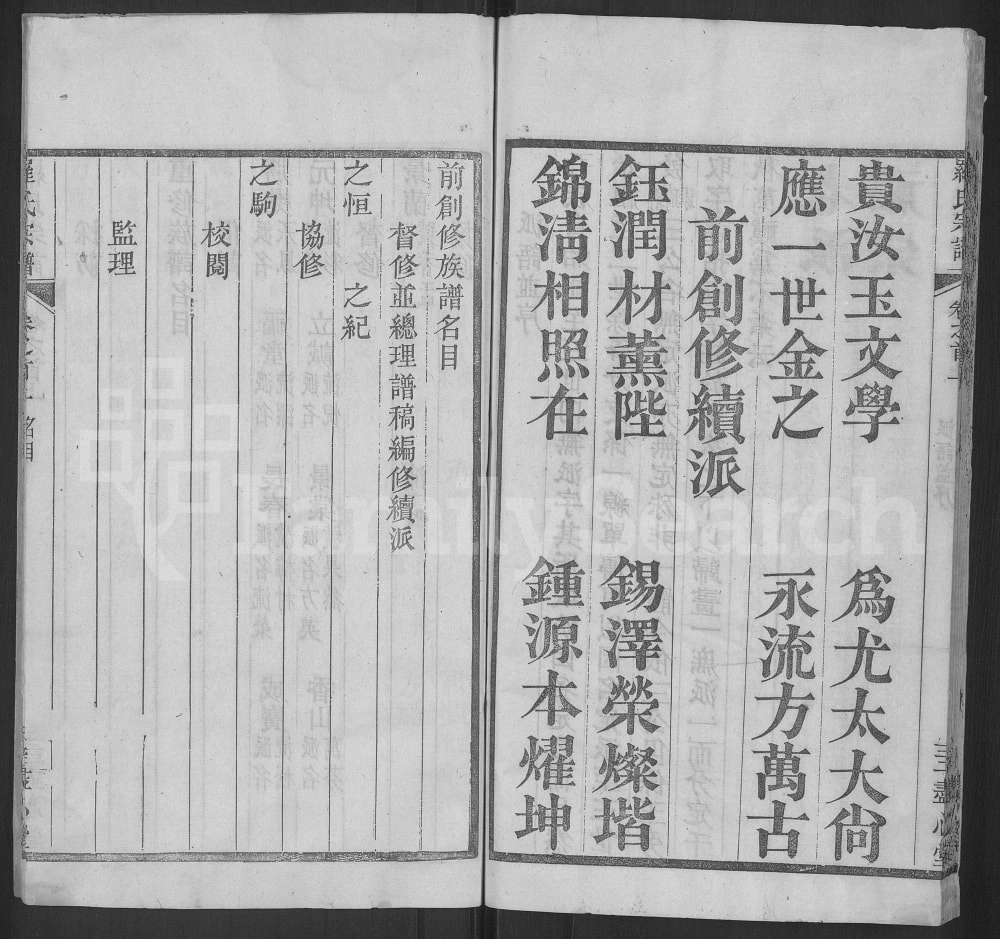 羅氏宗譜
卷之首一
三
盡心堂
貴汝玉文學　為尤太大尙
應一世金之　永流方萬古
前創修續派
鈺潤材薰陛　錫澤榮燦堦
錦清相照在　鍾源本燿坤
前創修族譜名目
督修並總理譜稿編修續派
之恒　之紀
協修
之駒
校閱
監理
羅氏宗譜
名目
FamilySearch